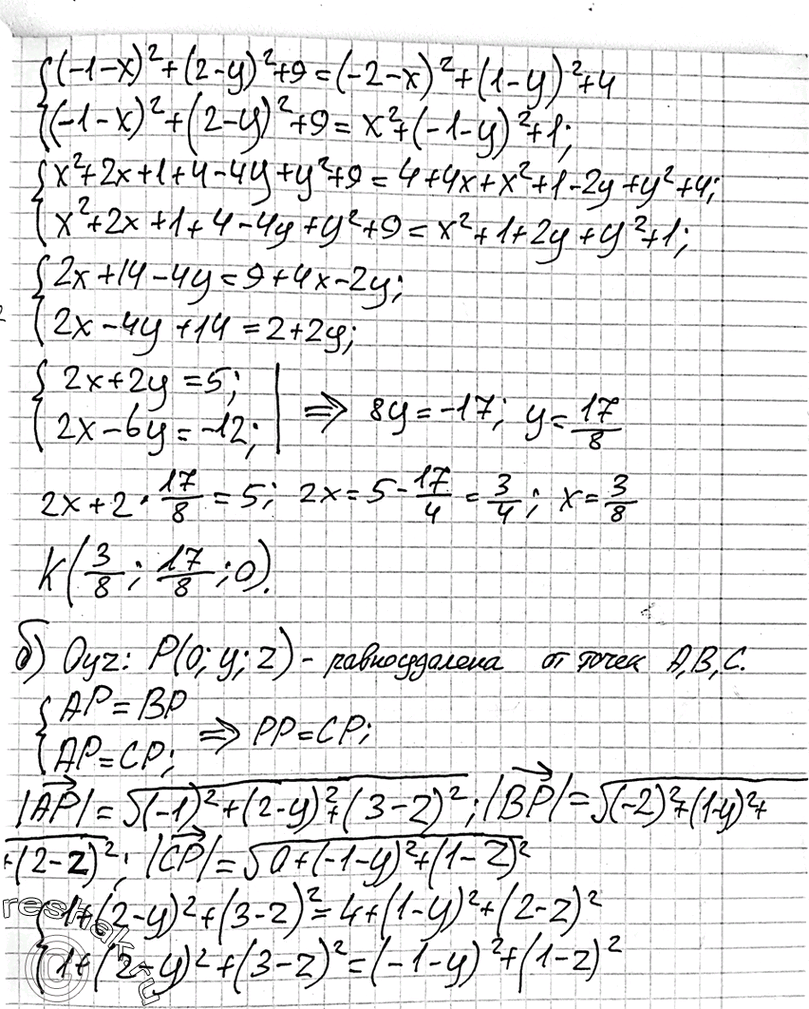 (-1-x)²+(2-y)²+9=(-2-x)²+(1-y)²+4
(-1-x)²+(2-y)²+9=x²+(-1-y)²+1;
x²+2x+1+4-4y+y²+9=4+4x+x²+1-2y+y²+4;
x²+2x+1+4-4y+y²+9=x²+1+2y+y²+1;
2x+14-4y=9+4x-2y;
2x-4y+14=2+2y;
2x+2y=5;
2x-6y=-12; | ⇒ 8y=-17; y=17/8
2x+2·17/8=5; 2x=5-17/4=3/4; x=3/8
K(3/8; 17/8; 0).
б) Oyz: P(0; y; z) - равноудалена от точек A,B,C.
AP=BP
AP=CP; ⇒ PP=CP;
|AP|=√(-1)²+(2-y)²+(3-z)²; |BP|=√(-2)²+(1-y)²+
+(2-z)²; |CP|=√0+(-1-y)²+(1-z)²
1+(2-y)²+(3-z)²=4+(1-y)²+(2-z)²
1+(2-y)²+(3-z)²=(-1-y)²+(1-z)²
reshak.ru